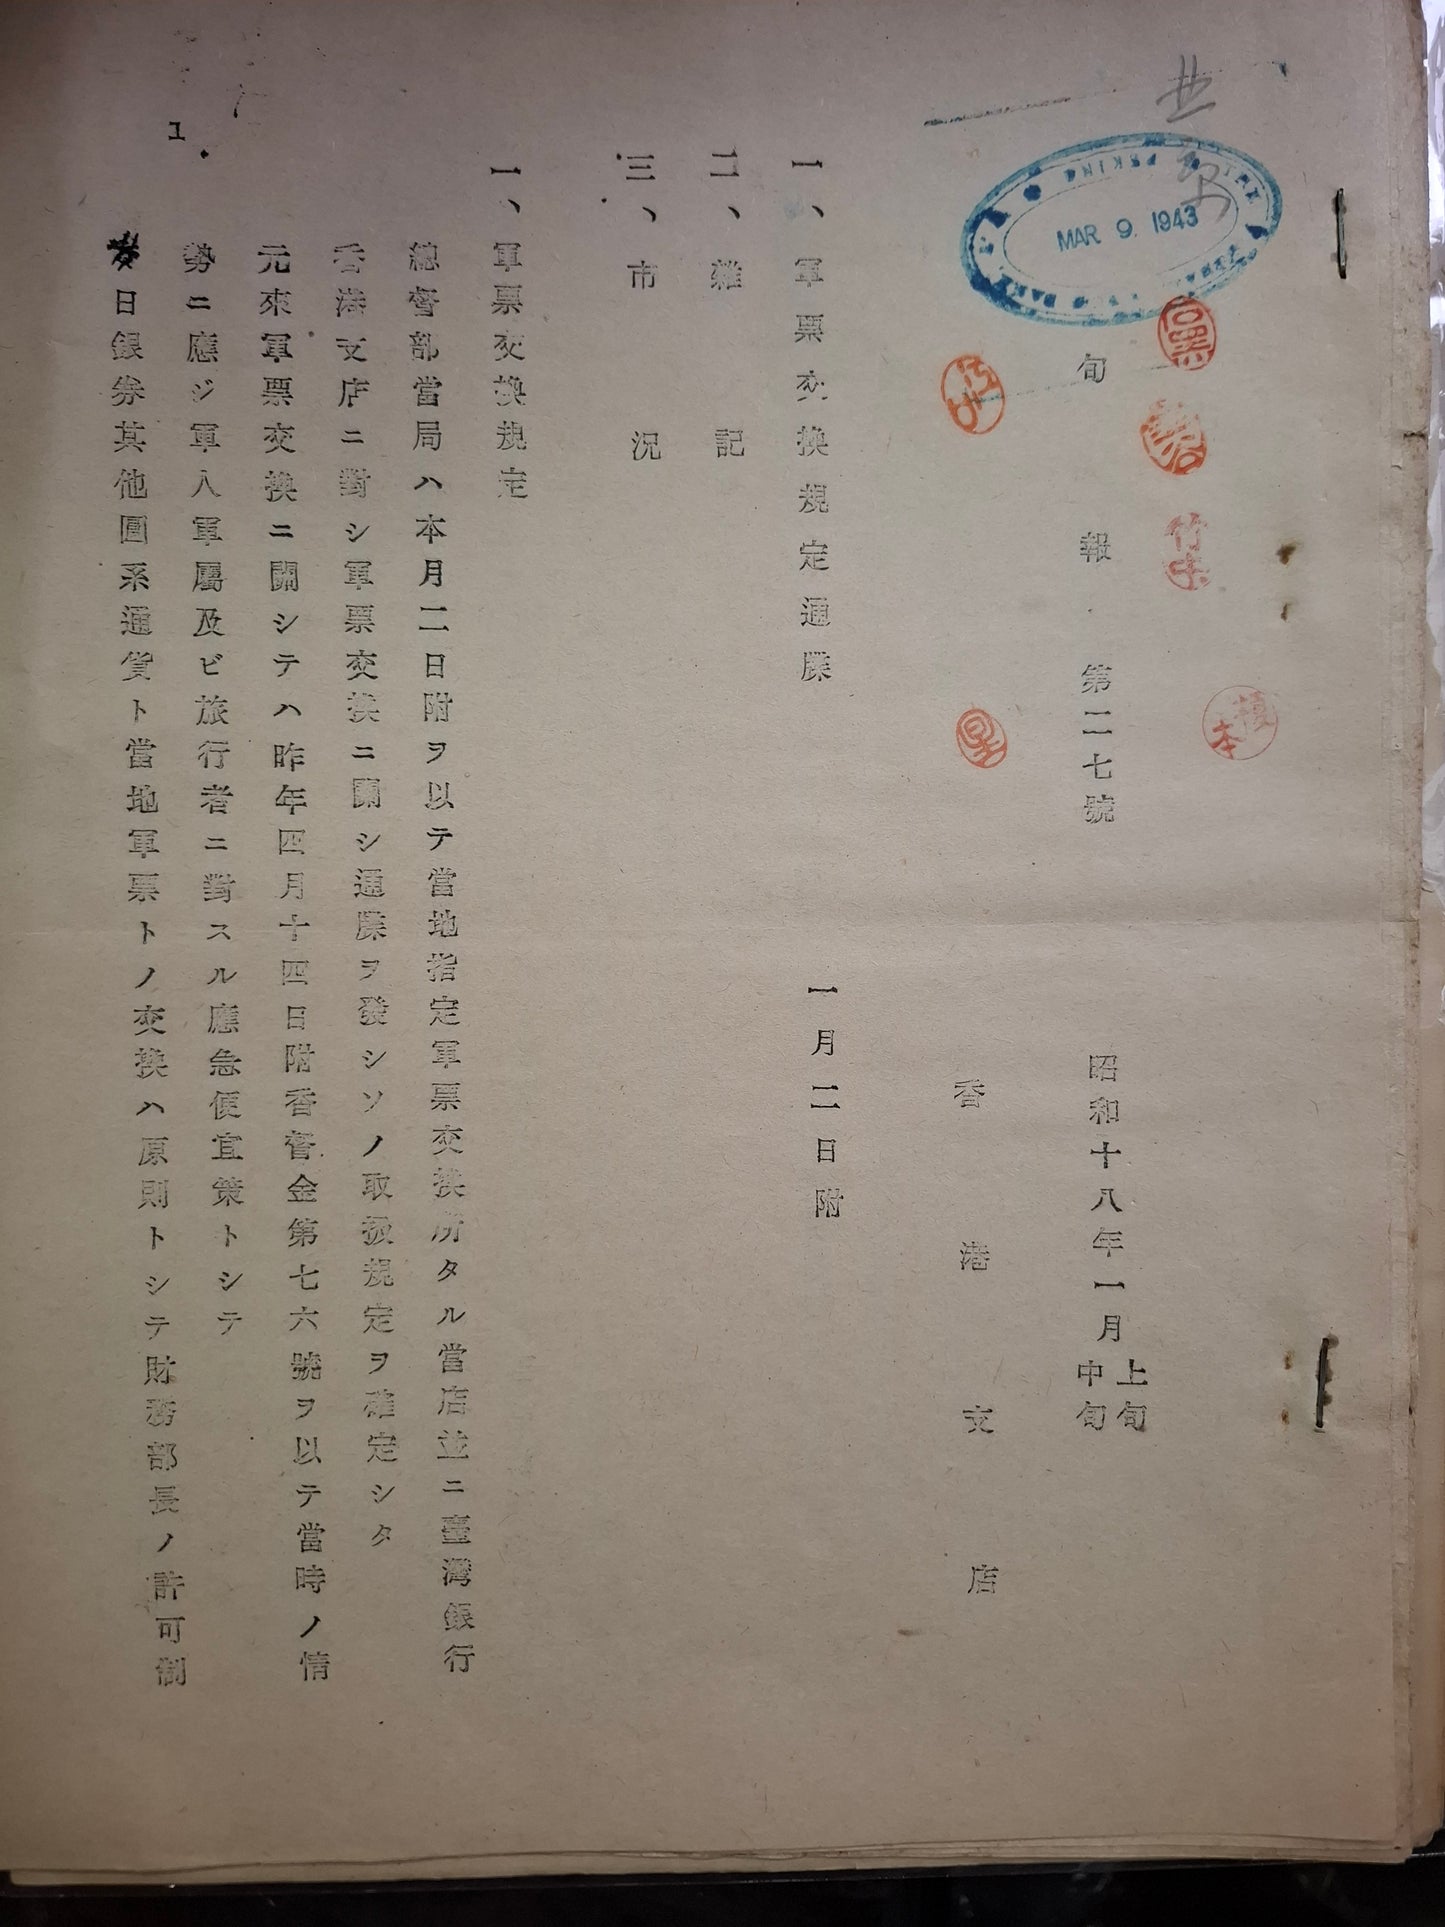 旬報 第二七號
昭和十八年一月上旬中旬
香港支店
一、軍票交換規定通牒 一月二日附
二、雑記
三、市況
一、軍票交換規定
總督部當局ハ本月二日附ヲ以テ當地指定軍票交換所タル當店並ニ臺灣銀行
香港支店ニ對シ軍票交換ニ關シ通牒ヲ發シソノ取扱規定ヲ確定シタ
元來軍票交換ニ關シテハ昨年四月十四日附香督金第七六號ヲ以テ當時ノ情
勢ニ應ジ軍人軍屬及ビ旅行者ニ對スル應急便宜策トシテ
日銀券其他圓系通貨ト當地軍票トノ交換ハ原則トシテ財務部長ノ許可制
1.
MAR 9 1943
PEKING
榎本
竹本